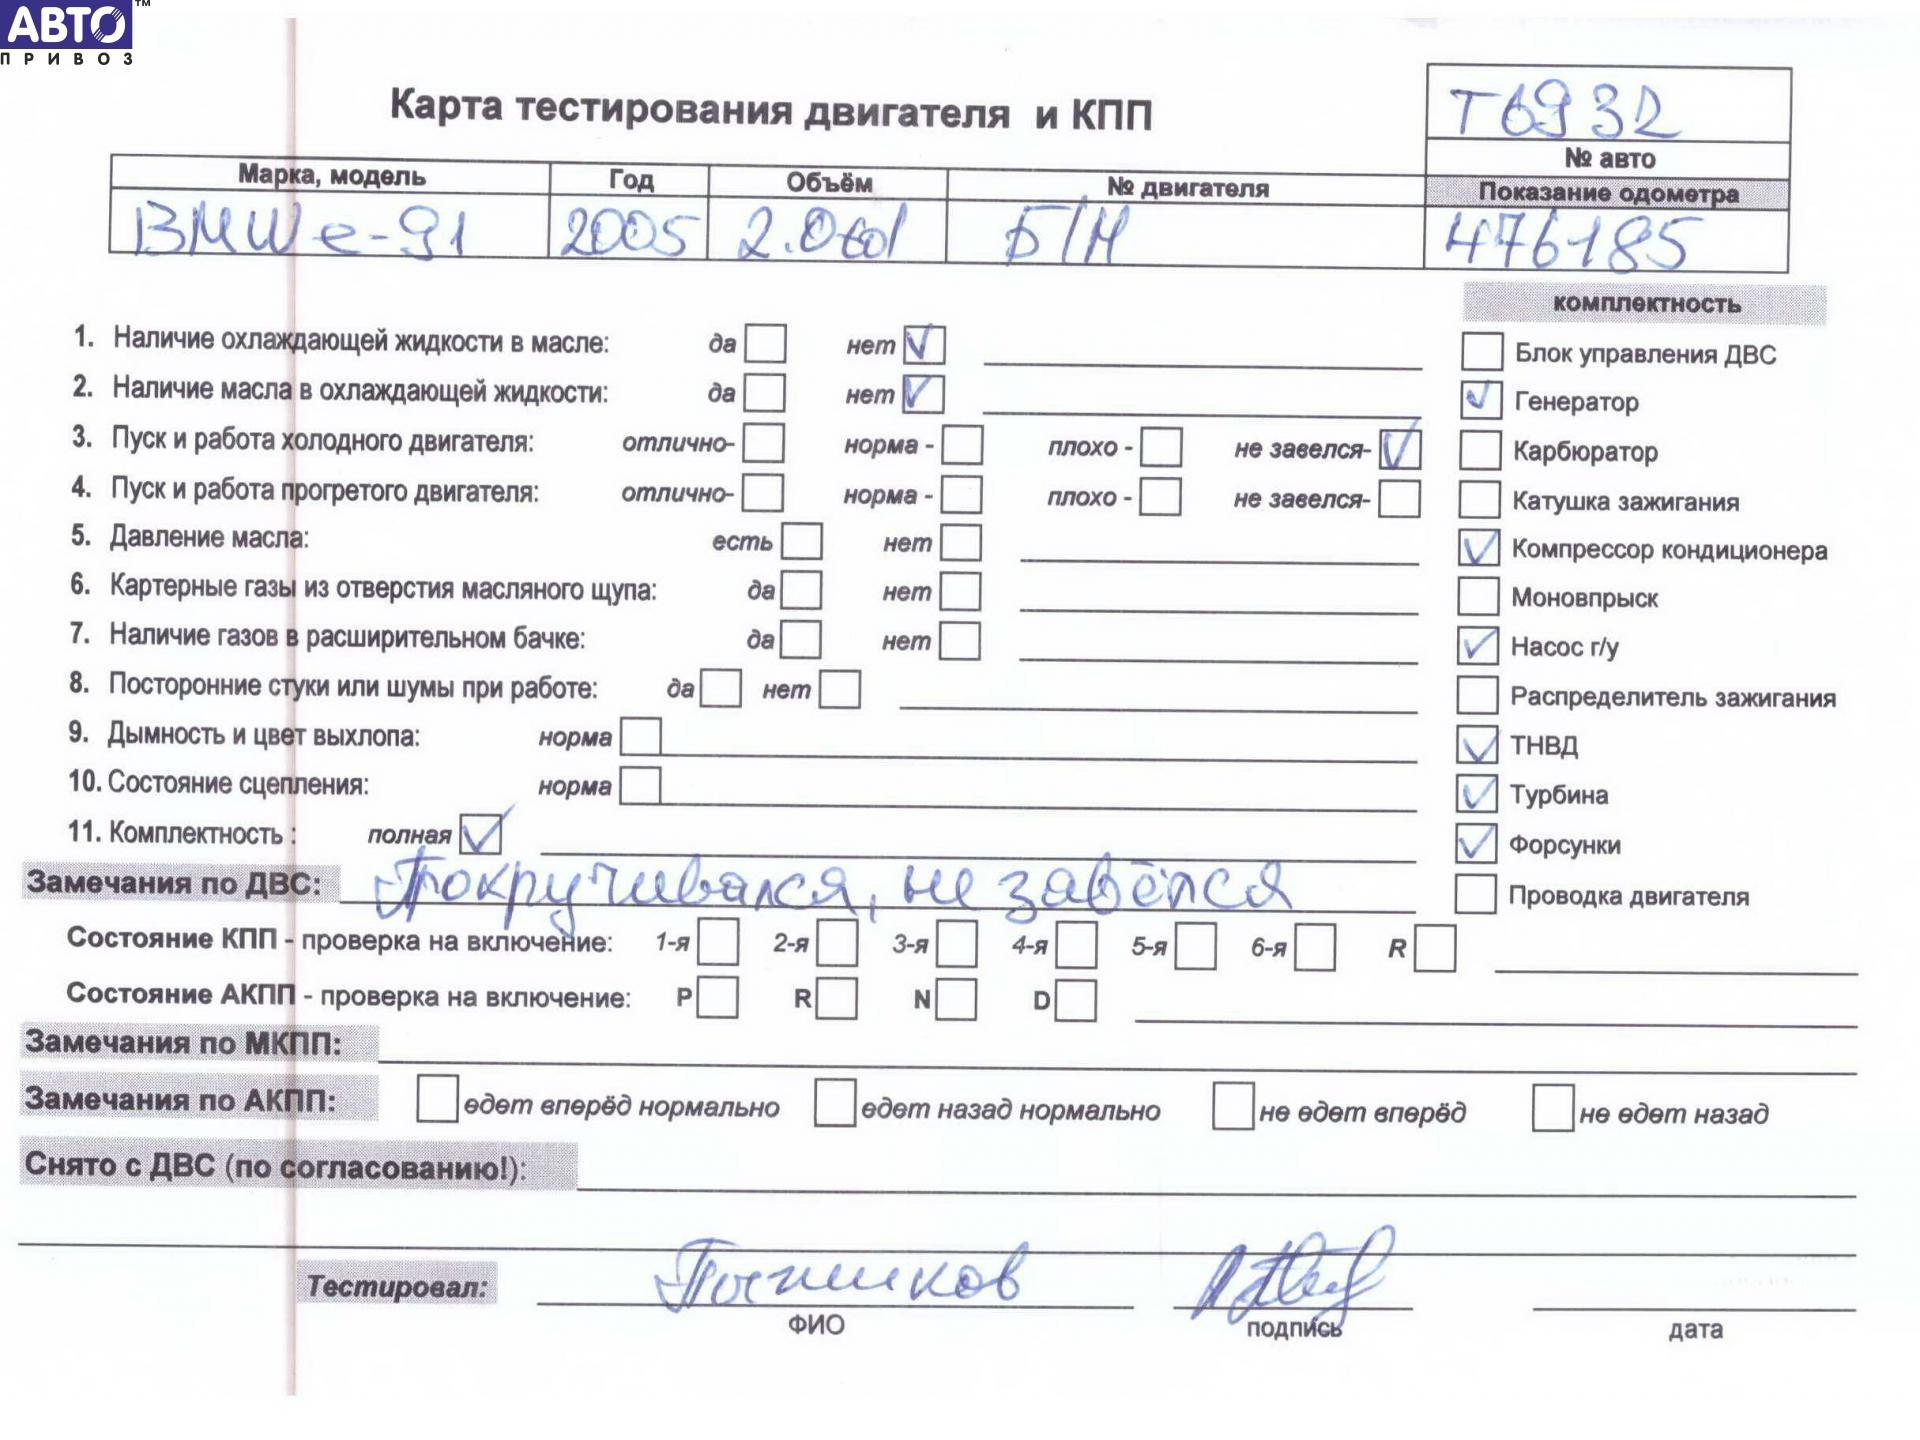 АВТО™
ПРИВОЗ
Карта тестирования двигателя и КПП
Т6932
№ авто
Марка, модель Год Объём № двигателя Показание одометра
BMW e-91 2005 2.0 Б/Н 476185
комплектность
1. Наличие охлаждающей жидкости в масле: да нет ✓ Блок управления ДВС
2. Наличие масла в охлаждающей жидкости: да нет ✓ ✓ Генератор
3. Пуск и работа холодного двигателя: отлично- норма - плохо - не завелся- ✓ Карбюратор
4. Пуск и работа прогретого двигателя: отлично- норма - плохо - не завелся- Катушка зажигания
5. Давление масла: есть нет ✓ Компрессор кондиционера
6. Картерные газы из отверстия масляного щупа: да нет Моновпрыск
7. Наличие газов в расширительном бачке: да нет ✓ Насос г/у
8. Посторонние стуки или шумы при работе: да нет Распределитель зажигания
9. Дымность и цвет выхлопа: норма ✓ ТНВД
10. Состояние сцепления: норма ✓ Турбина
11. Комплектность : полная ✓ ✓ Форсунки
Замечания по ДВС: Покручивался, не завёлся Проводка двигателя
Состояние КПП - проверка на включение: 1-я 2-я 3-я 4-я 5-я 6-я R
Состояние АКПП - проверка на включение: P R N D
Замечания по МКПП:
Замечания по АКПП: едет вперёд нормально едет назад нормально не едет вперёд не едет назад
Снято с ДВС (по согласованию!):
Тестировал:
ФИО подпись дата